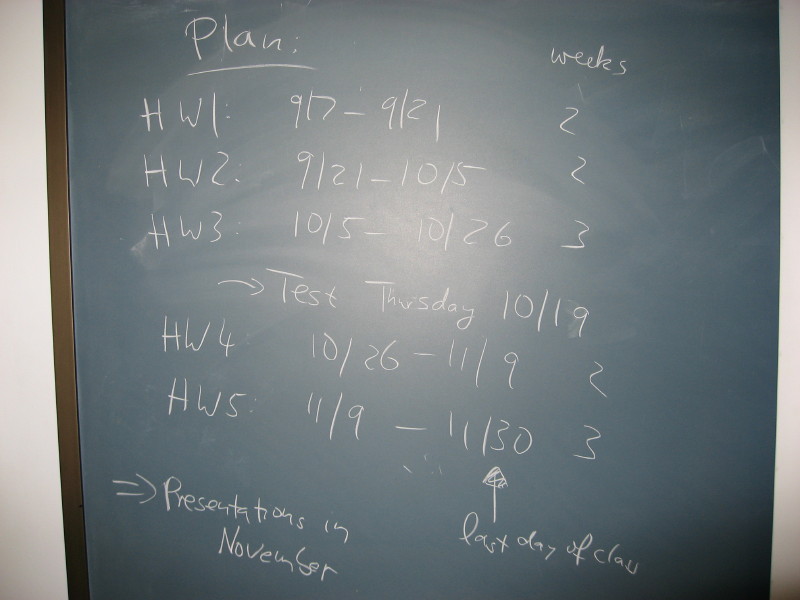 Plan:
weeks
HW1: 9/7 – 9/21 2
HW2: 9/21 – 10/5 2
HW3: 10/5 – 10/26 3
→ Test Thursday 10/19
HW4 10/26 – 11/9 2
HW5: 11/9 – 11/30 3
⇒ Presentations in
November
last day of class